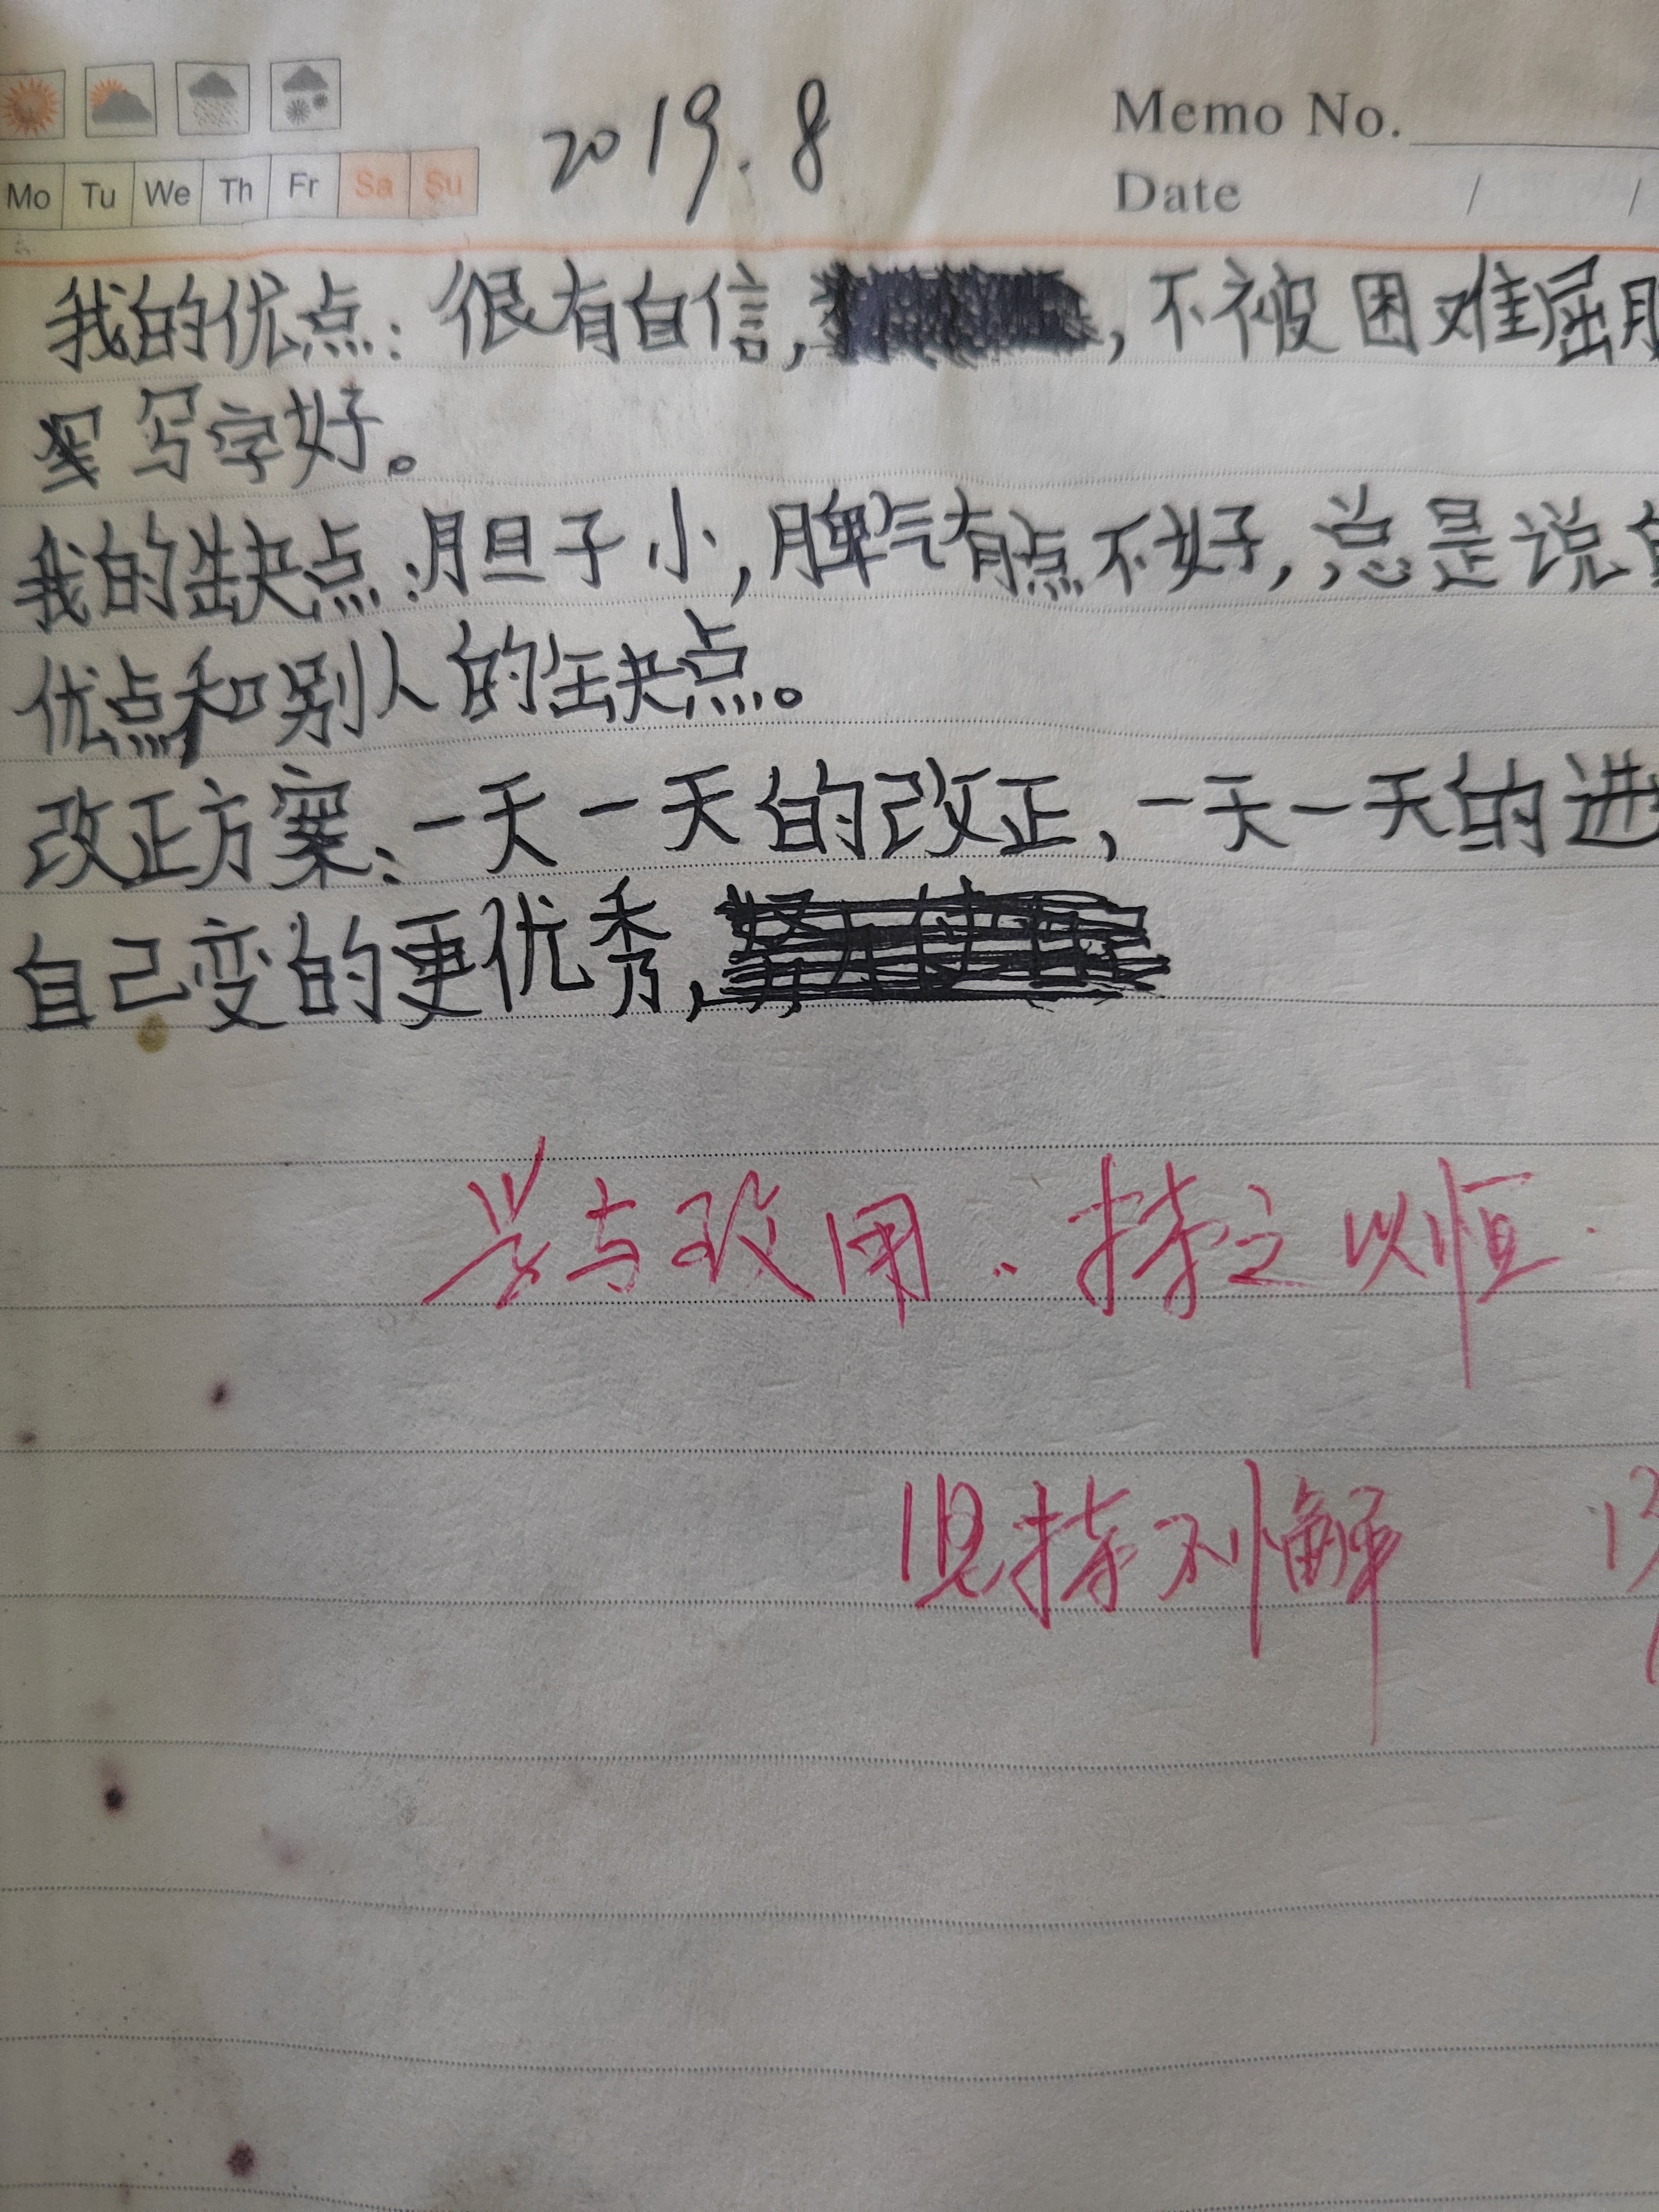 2019.8
Memo No.
Date / /
Mo Tu We Th Fr Sa Su
我的优点：很有自信，，不被困难屈服
写字好。
我的缺点：胆子小，脾气有点不好，总是说自
优点和别人的缺点。
改正方案：一天一天的改正，一天一天的进
自己变的更优秀，
学与致用、持之以恒.
坚持不懈